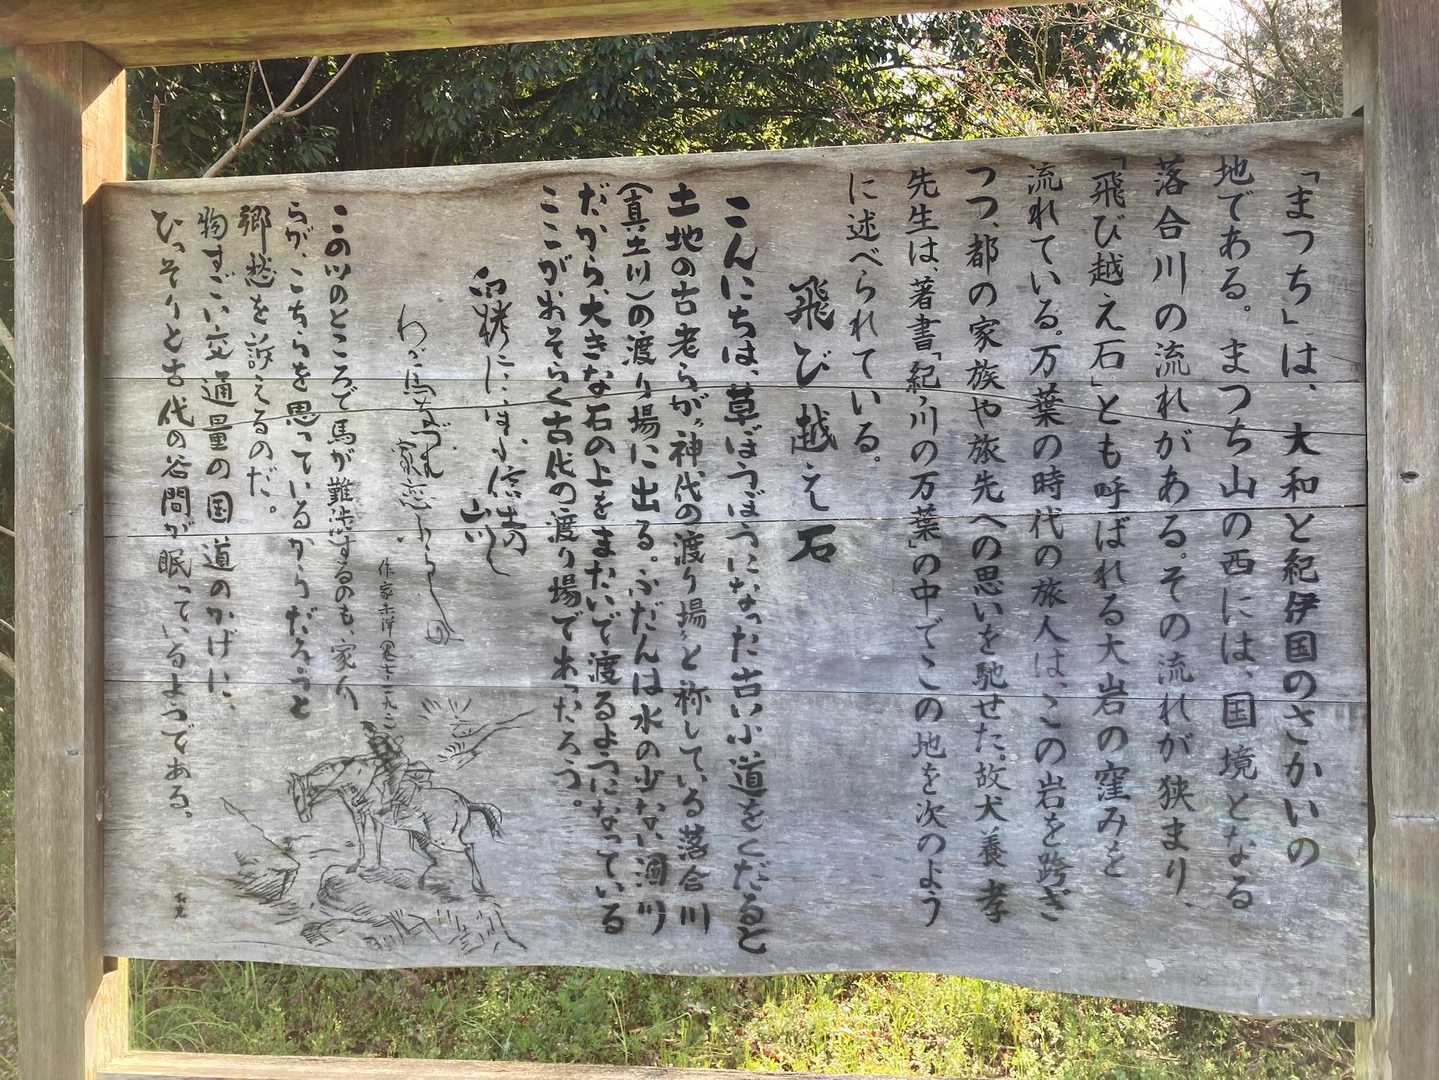 「まつち」は、大和と紀伊国のさかいの
地である。まつち山の西には、国境となる
落合川の流れがある。その流れが狭まり、
「飛び越え石」とも呼ばれる大岩の窪みを
流れている。万葉の時代の旅人は、この岩を跨ぎ
つつ、都の家族や旅先への思いを馳せた。故犬養孝
先生は、著書「紀ノ川の万葉」の中でこの地を次のよう
に述べられている。
飛び越え石
こんにちは、草ぼうぼうになった古い小道をくだると
土地の古老らが〝神代の渡り場〟と称している落合川
(真土川)の渡り場に出る。ふだんは水の少ない涸川
だから、大きな石の上をまたいで渡るようになっている
ここがおそらく古代の渡り場であったろう。
白栲ににほふ信土の
山川に
わが馬なづむ
家恋ふらしも
作家未詳 七−一一九二
この川のところで馬が難渋するのも、家人
らが、こちらを思っているからだろうと
郷愁を訴えるのだ。
物すごい交通量の国道のかげに、
ひっそりと古代の谷間が眠っているようである。